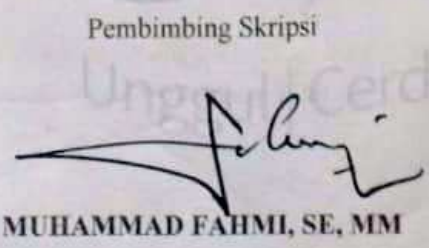 Pembimbing Skripsi
Unggul Cerd
Fahmi
MUHAMMAD FAHMI, SE, MM